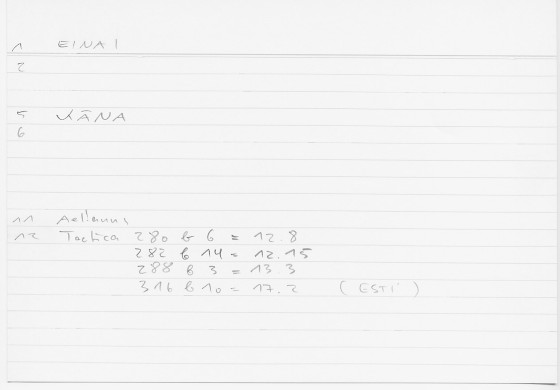 1 EINAI
2
5 KĀNA
6
11 Aelianus
12 Tactica 280 b 6 = 12.8
282 b 14 = 12.15
288 b 3 = 13.3
316 b 10 = 17.2 (ESTI)